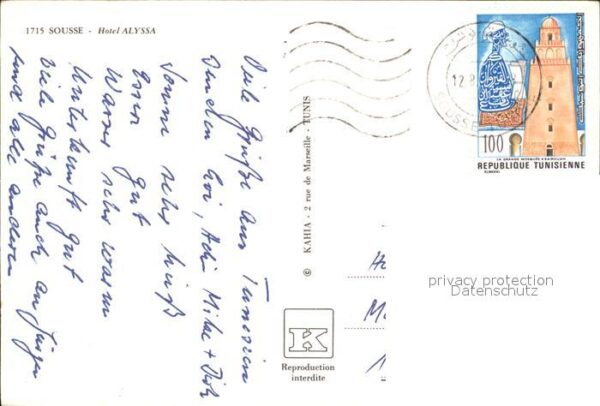 1715 SOUSSE - Hotel ALYSSA
Viele Grüße aus Tunesien
wünschen
Sonne sehr heiß
Essen gut
Wasser sehr warm
Unterkunft gut
Viele Grüße auch an Jürgen
und alle anderen
© KAHIA - 2 rue de Marseille - TUNIS
K
Reproduction
interdite
SOUSSE
12.8
100
LA GRANDE MOSQUÉE KAIROUAN
REPUBLIQUE TUNISIENNE
privacy protection
Datenschutz